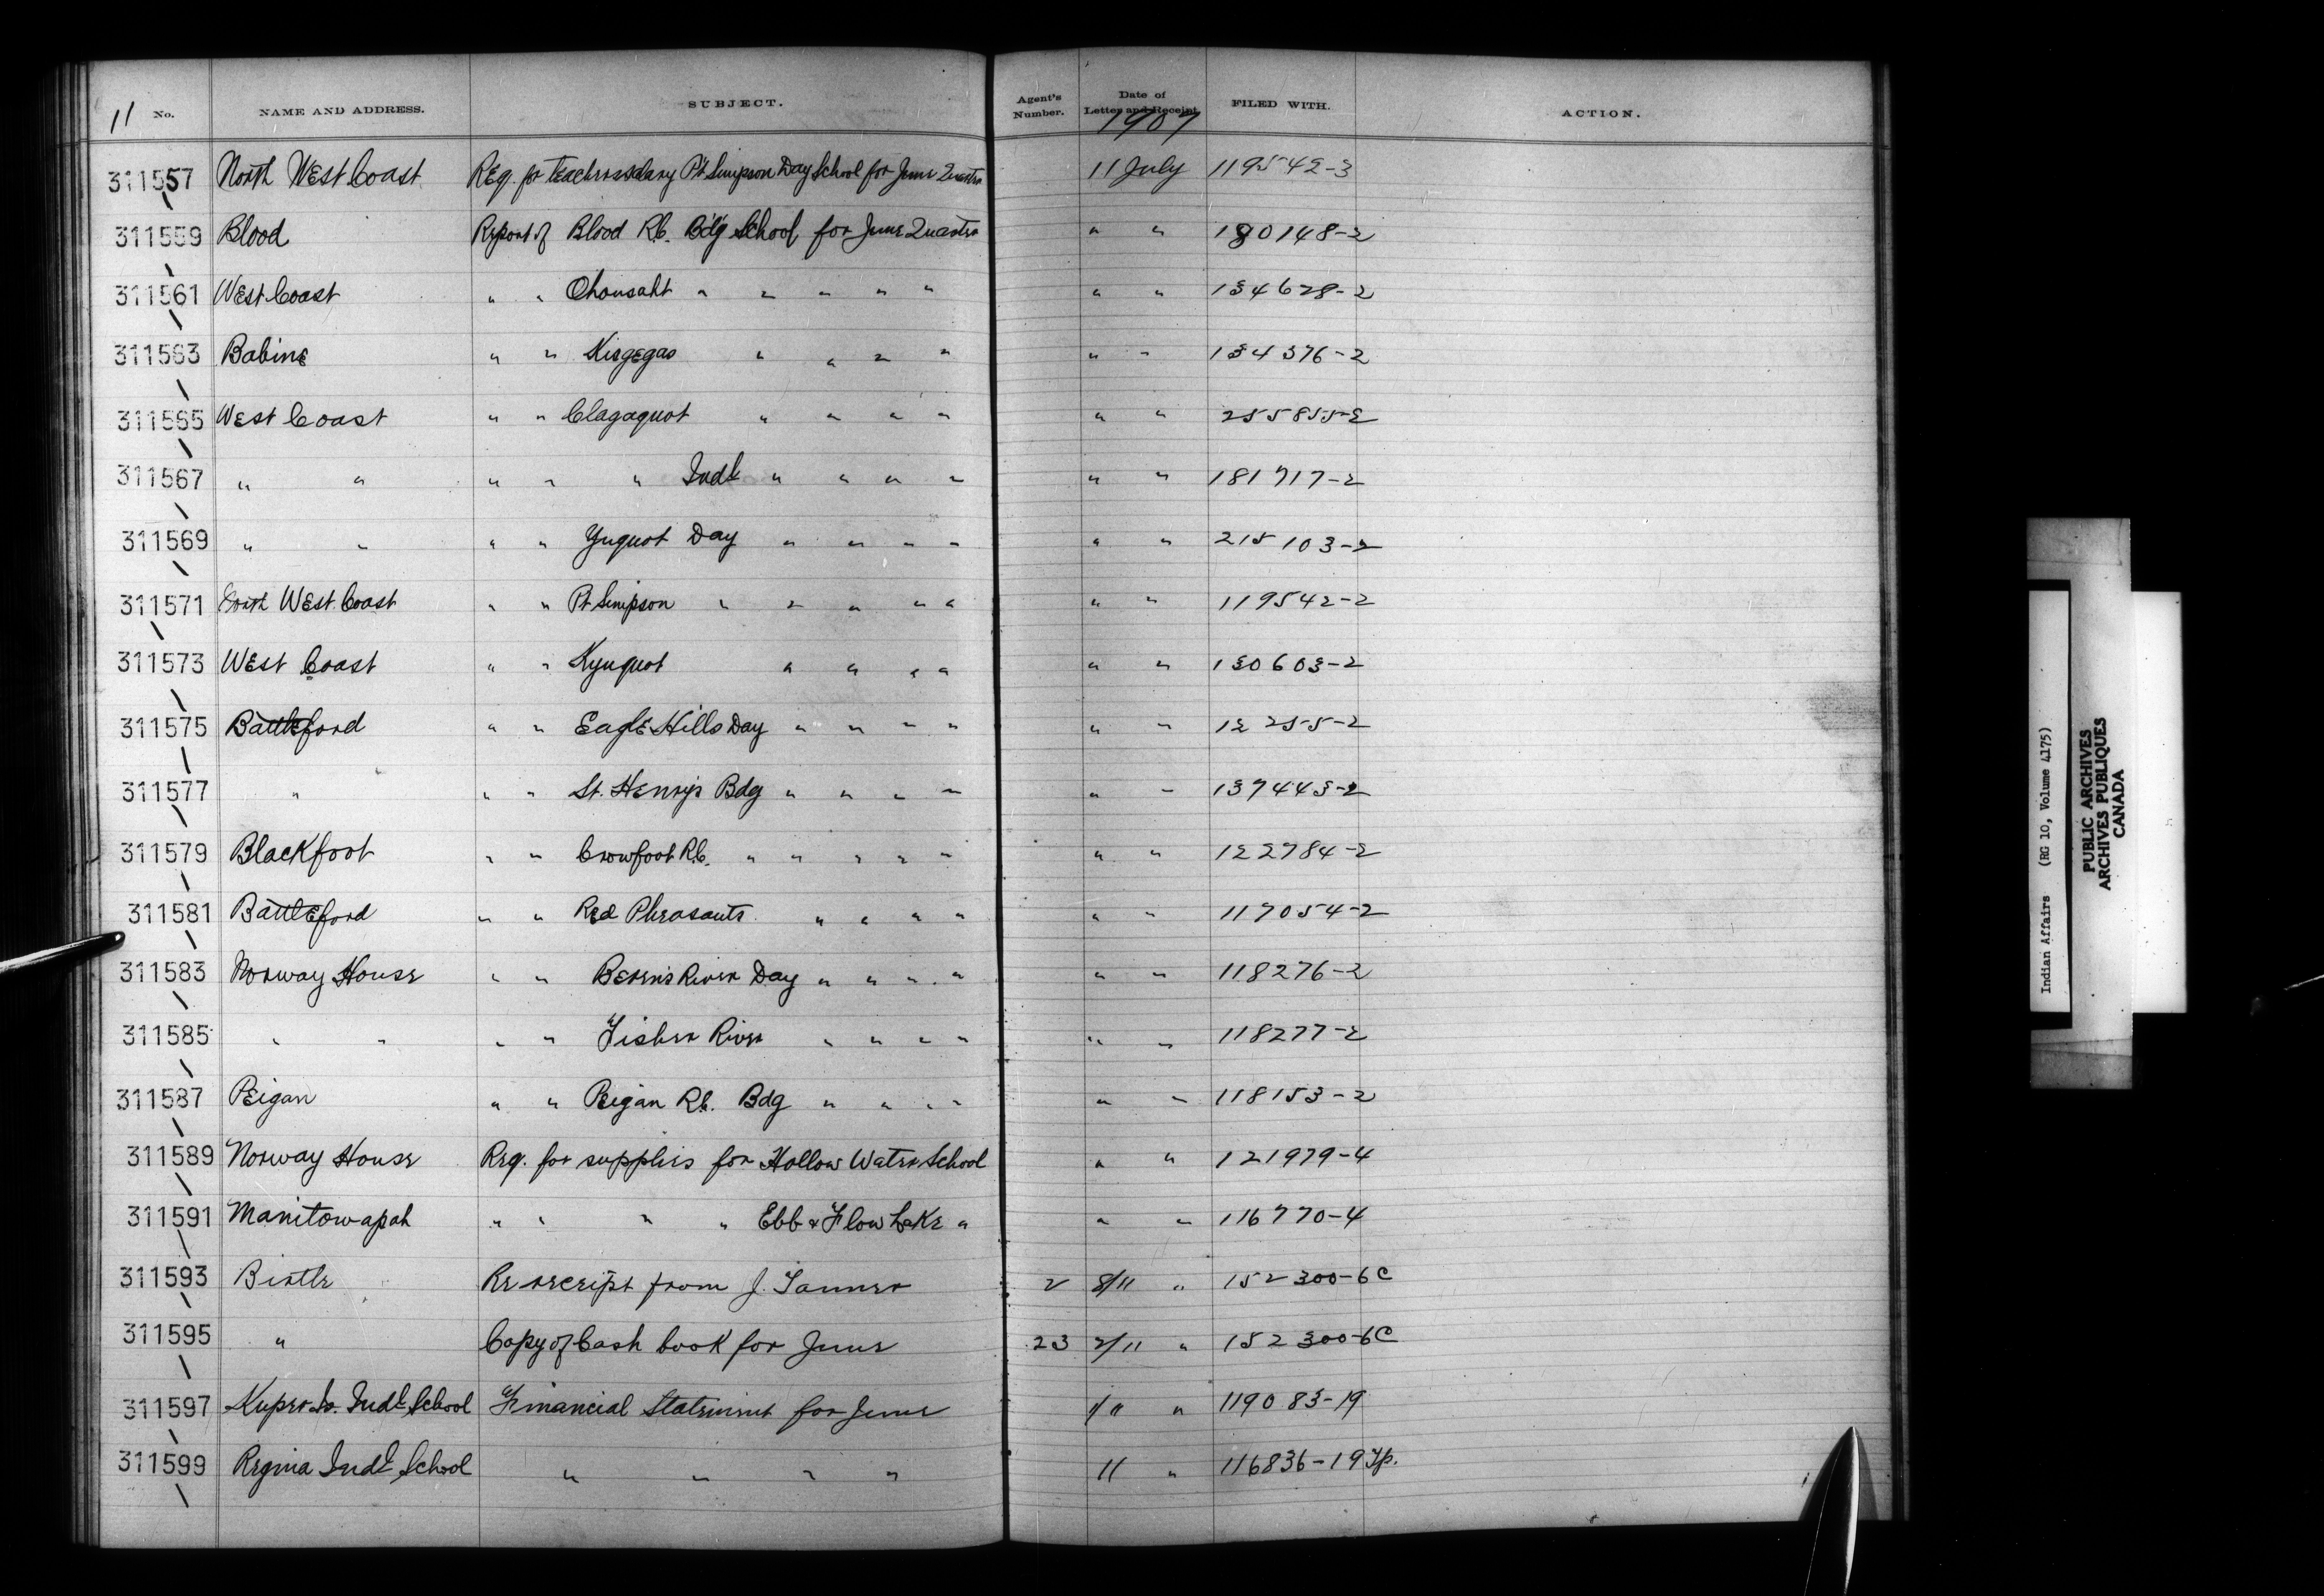 11 No. NAME AND ADDRESS. SUBJECT. Agent's Number. Date of Letter and Receipt 1907 FILED WITH. ACTION.
311557 North West Coast Req. for teachers salary Pt Simpson Day School for June Quarter 11 July 119542-3
311559 Blood Report of Blood R.C. Bdg School for June Quarter " " 130148-2
311561 West Coast " " Ohousaht " " " " " " " 134628-2
311563 Babine " " Kisgegas " " " " " " 134376-2
311565 West Coast " " Clayoquot " " " " " " 255855-2
311567 " " " " " Indl " " " " " " 181717-2
311569 " " " " Yuquot Day " " " " " " 215103-2
311571 North West Coast " " Pt Simpson " " " " " " " 119542-2
311573 West Coast " " Kyuquot " " " " " " 130603-2
311575 Battleford " " Eagle Hills Day " " " " " " 12255-2
311577 " " " St. Henry's Bdg " " " " " " 137443-2
311579 Blackfoot " " Crowfoot R.C. " " " " " " " 122784-2
311581 Battleford " " Red Pheasants " " " " " " 117054-2
311583 Norway House " " Beren's River Day " " " " " " 118276-2
311585 " " " " Fisher River " " " " " " 118277-2
311587 Peigan " " Peigan R.C. Bdg " " " " " " 118153-2
311589 Norway House Req. for supplies for Hollow Water School " " 121979-4
311591 Manitowapah " " " " Ebb & Flow Lake " " " 116770-4
311593 Birtle Re receipt from J. Tanner 2 8/11 " 152300-6C
311595 " Copy of Cash book for June 23 2/11 " 152300-6C
311597 Kuper Is. Indl School Financial Statement for June 1/11 " 119083-19
311599 Regina Indl School " " " " 11 " 116836-19 Tp.
Indian Affairs (RG 10, Volume 4175)
PUBLIC ARCHIVES
ARCHIVES PUBLIQUES
CANADA